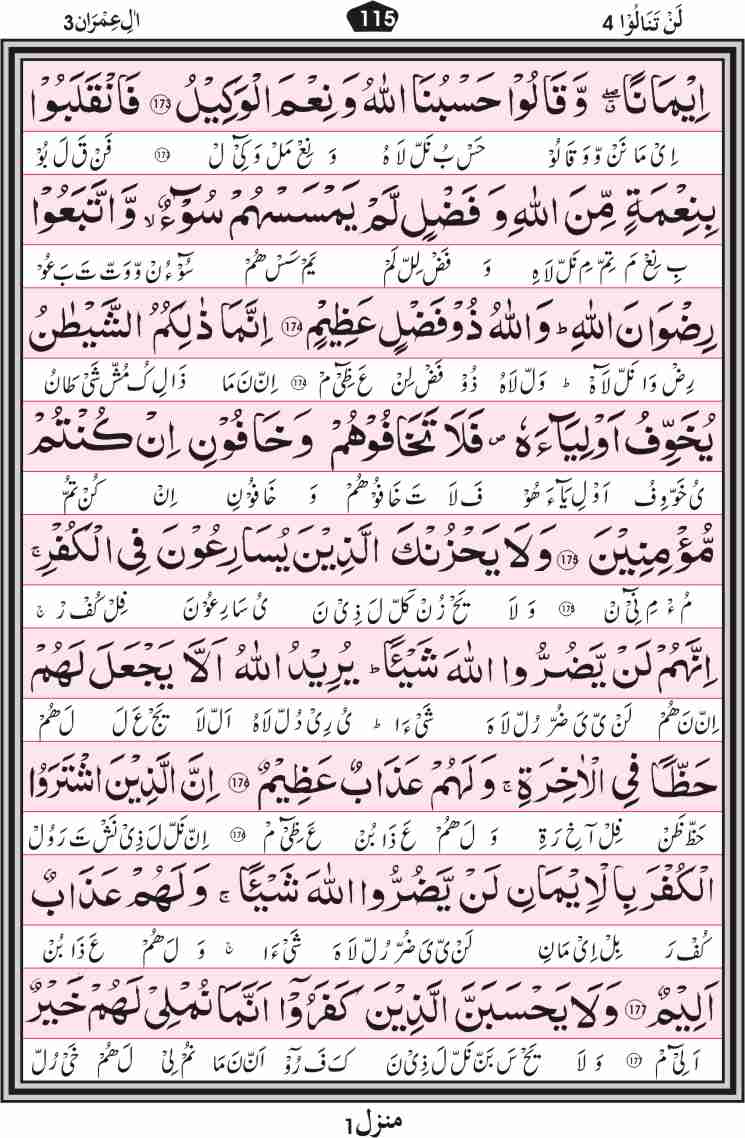 لَنْ تَنَالُوْا 4
115
اٰلِ عِمْرَان 3
اِيْمَانًا ۖۗ وَّ قَالُوْا حَسْبُنَا اللّٰهُ وَ نِعْمَ الْوَكِيْلُ ﴿173﴾ فَانْقَلَبُوْا
اِىْ مَا نَنْ وَّ وَ قَا لُوْ حَسْ بُ نَلْ لَا هُ وَ نِعْ مَلْ وَ كِىْٓ لْ ﴿173﴾ فَنْ قَ لَ بُوْ
بِنِعْمَةٍ مِّنَ اللّٰهِ وَ فَضْلٍ لَّمْ يَمْسَسْهُمْ سُوْٓءٌ ۙ وَّ اتَّبَعُوْا
بِ نِعْ مَ تِمْ مِ نَلْ لَاهِ وَ فَضْ لِلْ لَمْ يَمْ سَسْ هُمْ سُوْٓ ءُ نْ وَّ وَتْ تَ بَ عُوْ
رِضْوَانَ اللّٰهِ ؕ وَ اللّٰهُ ذُوْ فَضْلٍ عَظِيْمٍ ﴿174﴾ اِنَّمَا ذٰلِكُمُ الشَّيْطٰنُ
رِضْ وَا نَلْ لَاهْ ؕ وَلْ لَاهُ ذُوْ فَضْ لِنْ عَ ظِىْٓ مْ ﴿174﴾ اِنْ نَ مَا ذَا لِ كُ مُشْ شَىْ طَا نُ
يُخَوِّفُ اَوْلِيَآءَهٗ ۪ فَلَا تَخَافُوْهُمْ وَ خَافُوْنِ اِنْ كُنْتُمْ
ىُ خَوْ وِ فُ اَوْ لِ يَآ ءَ هُوْ فَ لَا تَ خَا فُوْ هُمْ وَ خَا فُوْ نِ اِنْ كُنْ تُمْ
مُّؤْمِنِيْنَ ﴿175﴾ وَ لَا يَحْزُنْكَ الَّذِيْنَ يُسَارِعُوْنَ فِى الْكُفْرِ ۚ
مُ ءْ مِ نِىْٓ نْ ﴿175﴾ وَ لَا يَحْ زُ نْ كَلْ لَ ذِىْ نَ ىُ سَا رِ عُوْ نَ فِلْ كُفْ رْ ۚ
اِنَّهُمْ لَنْ يَّضُرُّوا اللّٰهَ شَيْـًٔا ؕ يُرِيْدُ اللّٰهُ اَلَّا يَجْعَلَ لَهُمْ
اِنْ نَ هُمْ لَنْ ىْ ىَ ضُرْ رُ لْ لَا هَ شَىْ ءَا ؕ ىُ رِىْ دُ لْ لَا هُ اَلْ لَا يَجْ عَ لَ لَ هُمْ
حَظًّا فِى الْاٰخِرَةِ ۚ وَ لَهُمْ عَذَابٌ عَظِيْمٌ ﴿176﴾ اِنَّ الَّذِيْنَ اشْتَرَوُا
حَظْ ظَنْ فِلْ آ خِ رَةِ وَ لَ هُمْ عَ ذَا بُنْ عَ ظِىْٓ مْ ﴿176﴾ اِنْ نَلْ لَ ذِىْ نَشْ تَ رَوُلْ
الْكُفْرَ بِالْاِيْمَانِ لَنْ يَّضُرُّوا اللّٰهَ شَيْـًٔا ۚ وَ لَهُمْ عَذَابٌ
كُفْ رَ بِلْ اِىْ مَانِ لَنْ ىْ ىَ ضُرْ رُ لْ لَا هَ شَىْ ءَا ۚ وَ لَ هُمْ عَ ذَا بُنْ
اَلِيْمٌ ﴿177﴾ وَ لَا يَحْسَبَنَّ الَّذِيْنَ كَفَرُوْٓا اَنَّمَا نُمْلِىْ لَهُمْ خَيْرٌ
اَ لِىْٓ مْ ﴿177﴾ وَ لَا يَحْ سَ بَنْ نَلْ لَ ذِىْ نَ كَ فَ رُوْٓ اَنْ نَ مَا نُمْ لِىْ لَ هُمْ خَىْ رُلْ
منزل 1